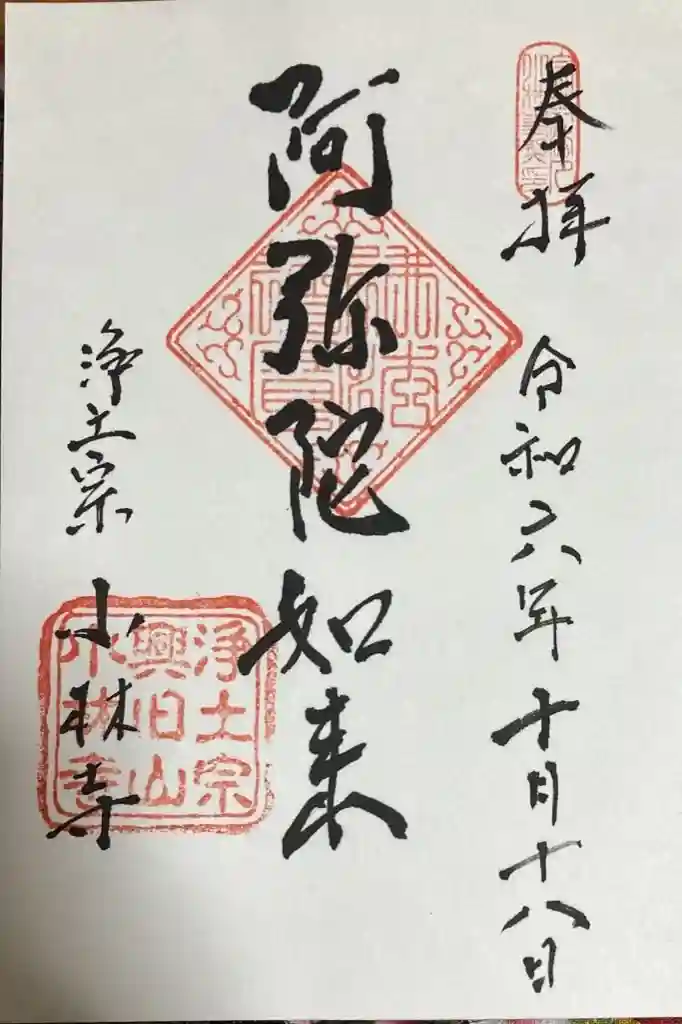 奉拝
令和六年十月十八日
阿弥陀如来
浄土宗
小林寺
浄土宗
興旧山
小林寺